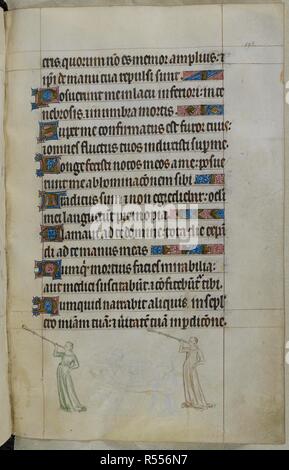 eris quorum nō es memor amplius: ⁊
ip̄i de manu tua repulsi sunt
Posuerunt me in lacu inferiori: in te
nebrosis ⁊ in umbra mortis
Super me confirmatus est furor tuus:
⁊ omnes fluctus tuos induxisti super me
Longe fecisti notos meos a me: posue
runt me abhominacōnem sibi
Traditus sum ⁊ non egrediebar: oculi
mei languerunt pre inopia
Clamavi ad te domine tota die: expan
di ad te manus meas
Nunquid mortuis facies mirabilia:
aut medici suscitabunt ⁊ cōfitebunt᷑ tibi
Nunquid narrabit aliquis in sepul
cro mīam tuā: ⁊ ūitatē tuā in p̄dicione
alamy
Image ID: R556N7
www.alamy.com